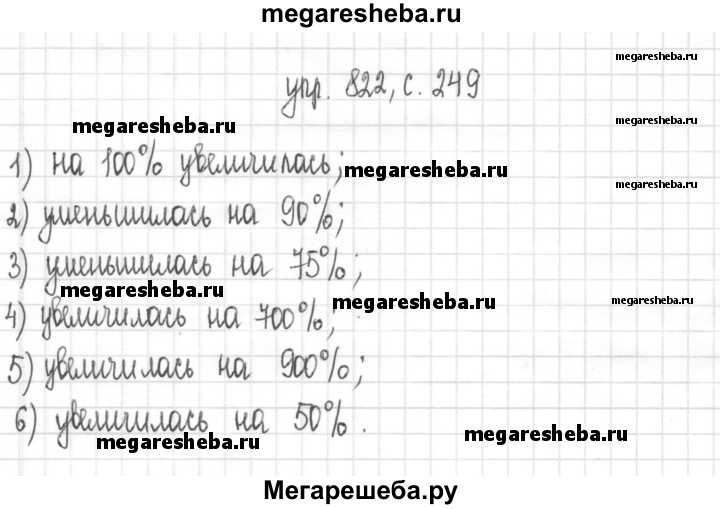 megaresheba.ru
megaresheba.ru
упр. 822, с. 249
megaresheba.ru
megaresheba.ru
1) на 100% увеличилась;
megaresheba.ru
megaresheba.ru
2) уменьшилась на 90%;
3) уменьшилась на 75%;
megaresheba.ru
megaresheba.ru
megaresheba.ru
4) увеличилась на 700%;
5) увеличилась на 900%;
6) увеличилась на 50%.
megaresheba.ru
megaresheba.ru
Мегарешеба.ру